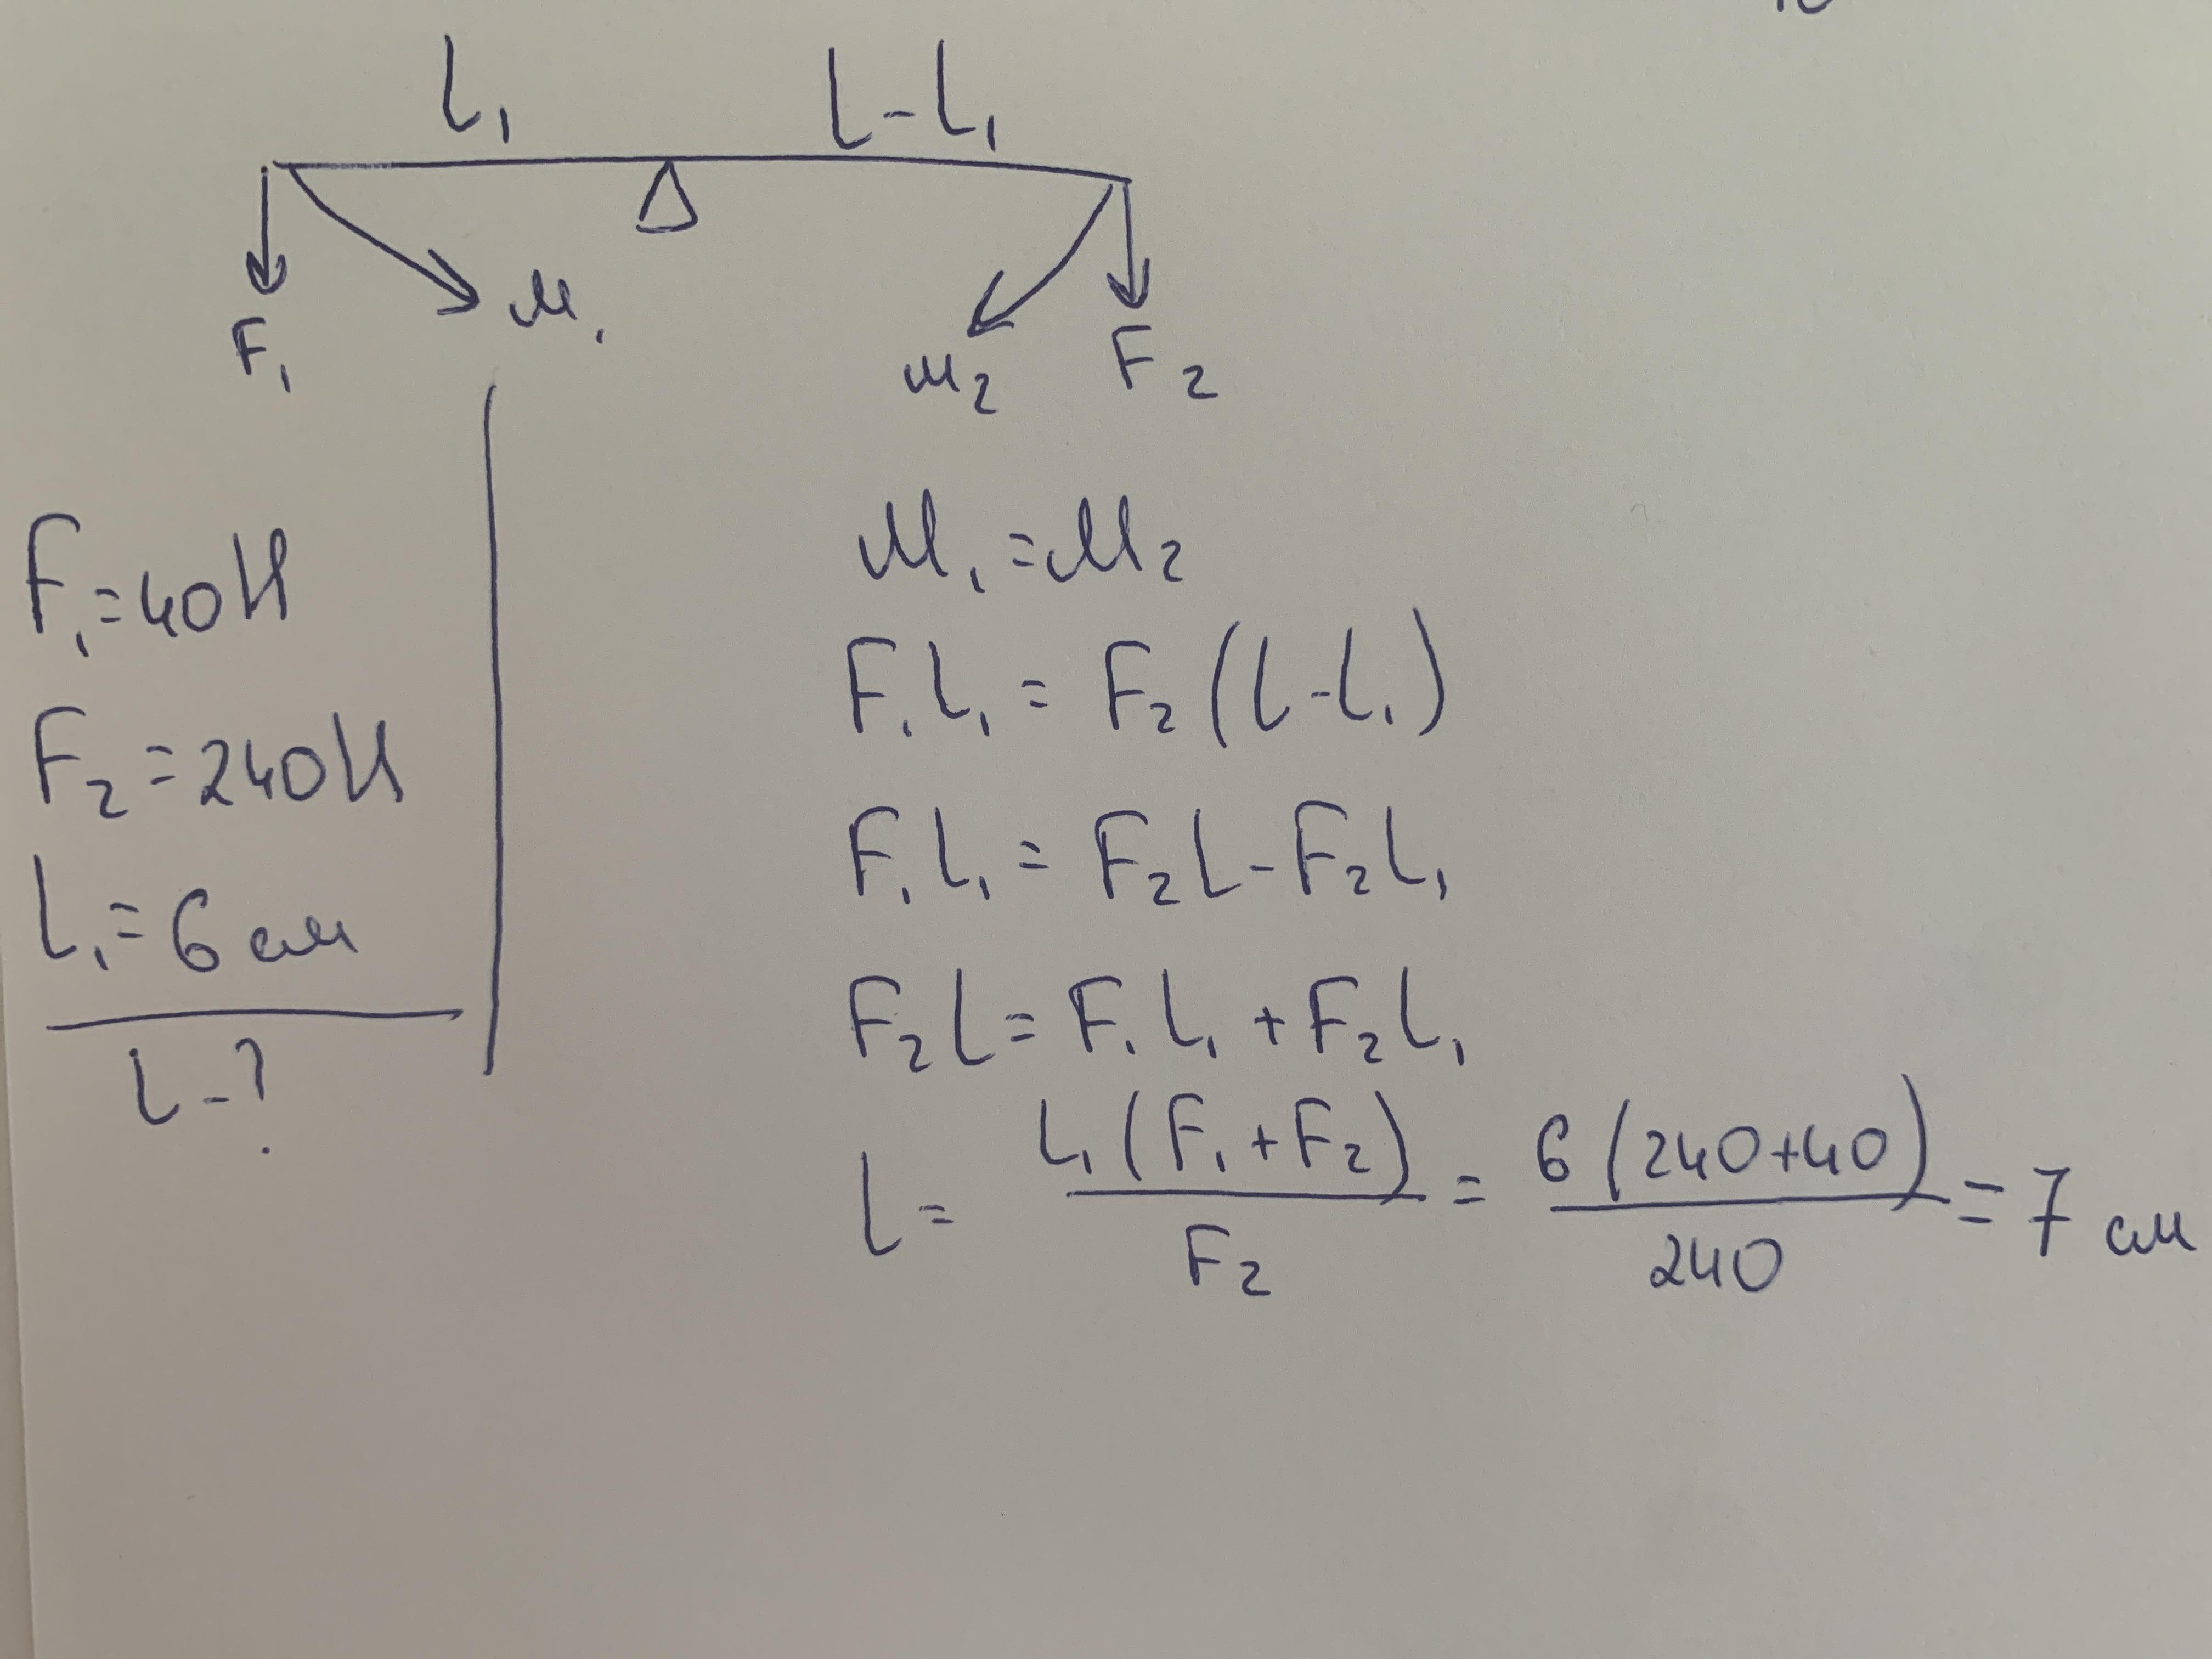 l₁ l-l₁
F₁ M₁ M₂ F₂
F₁=40Н
F₂=240Н
l₁=6 см
l-?
M₁=M₂
F₁l₁=F₂(l-l₁)
F₁l₁=F₂l-F₂l₁
F₂l=F₁l₁+F₂l₁
l= l₁(F₁+F₂)/F₂ = 6(240+40)/240 = 7 см